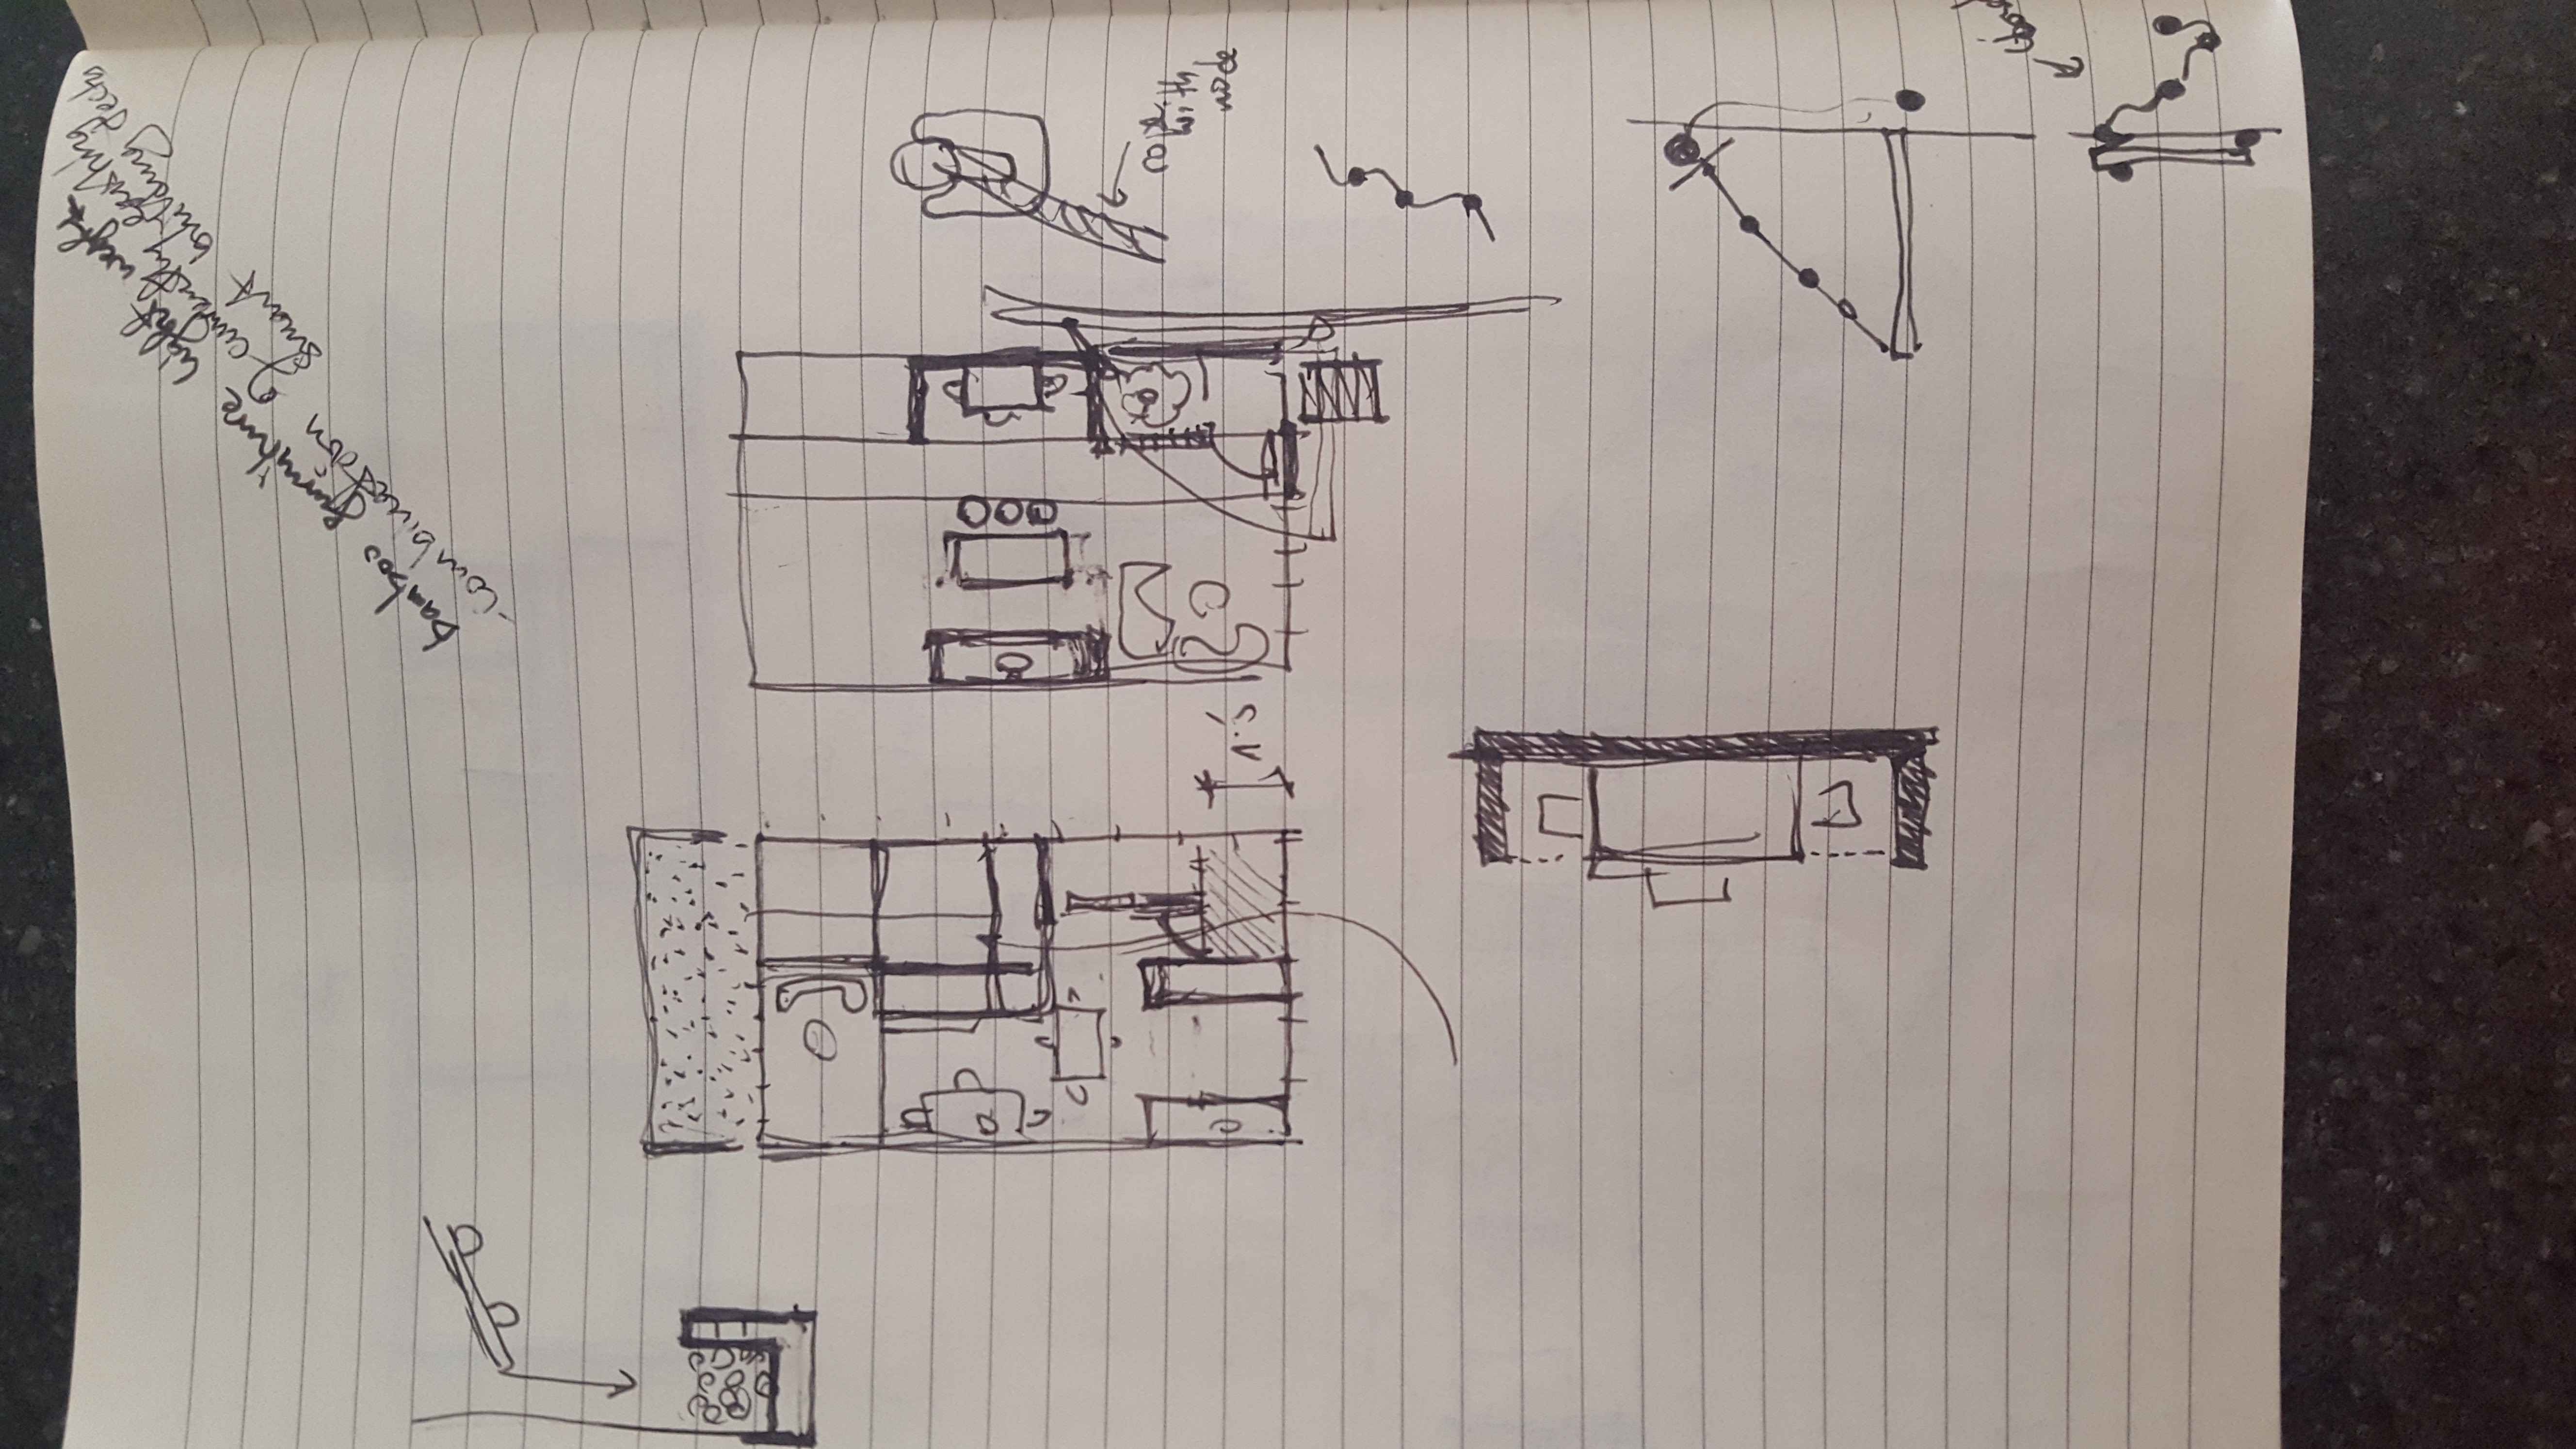 bamboo furniture light weight
-combination of currently existing
smart building techs
1.5
rope
with
node